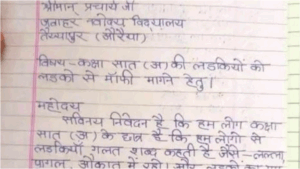 श्रीमान् प्रचार्य जी
जवाहर नवोदय विद्यालय
तैय्यापुर (औरैया)
विषय- कक्षा सात (अ) की लडकियों को
लडको से माँफी मागने हेतु।
महोदय
सविनय निवेदन है कि हम लोग कक्षा
सात (अ) के छात्र है कि हम लोगो से
लडकियाँ गलत शब्द कहती है जैसे- लल्ला,
पागल, औकात में रहो। और लडको का